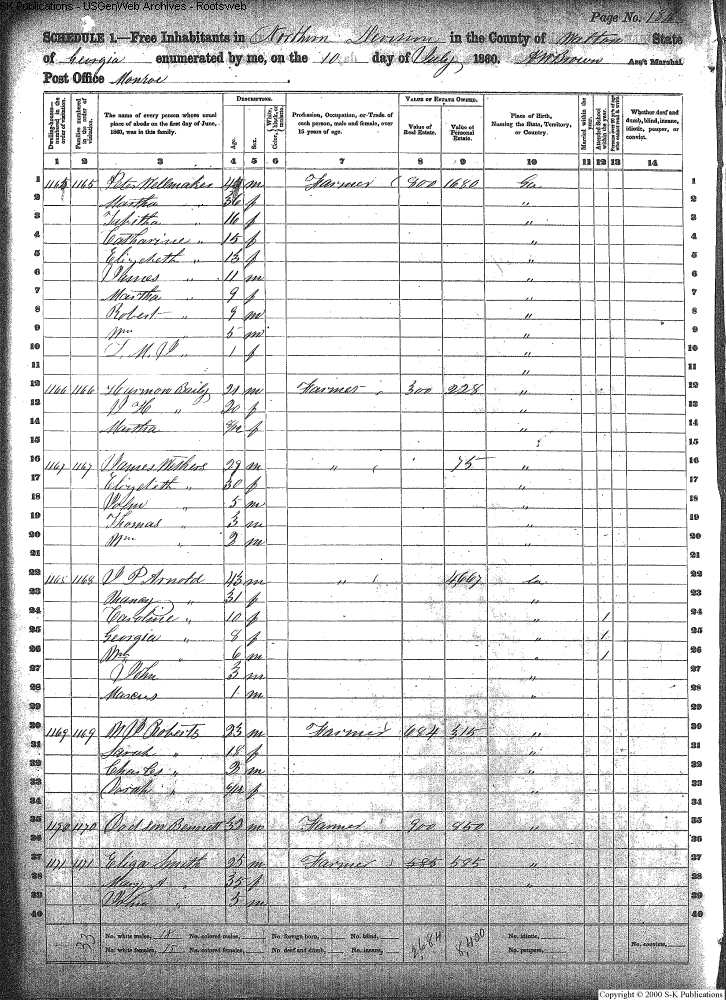 S-K Publications - USGenWeb Archives - Rootsweb
Page No.
SCHEDULE 1.—Free Inhabitants in Northern Division in the County of Walton State
of Georgia enumerated by me, on the 10 day of July 1860. Brown Ass't Marshal.
Post Office Monroe
Dwelling-houses—numbered in the order of visitation.
Families numbered in the order of visitation.
The name of every person whose usual place of abode on the first day of June, 1860, was in this family.
DESCRIPTION.
Age.
Sex.
Color, White, black, or mulatto.
Profession, Occupation, or Trade of each person, male and female, over 15 years of age.
VALUE OF ESTATE OWNED.
Value of Real Estate.
Value of Personal Estate.
Place of Birth, Naming the State, Territory, or Country.
Married within the year.
Attended School within the year.
Whether deaf and dumb, blind, insane, idiotic, pauper, or convict.
1 2 3 4 5 6 7 8 9 10 11 12 13 14
1 1165 1165 Peter Wellmaker m Farmer 800 1680 Ga 1
2 Martha " 36 f " 2
3 Tabitha " 16 f " 3
4 Catharine " 15 f " 4
5 Elizabeth " 13 f " 5
6 James " 11 m " 6
7 Martha " 9 f " 7
8 Robert " 9 m " 8
9 Wm " 5 m " 9
10 " 1 f " 10
11 11
12 1166 1166 Harmon Baily 21 m Farmer 300 228 " 12
13 " 20 f " 13
14 Martha " f " 14
15 15
16 1167 1167 James Withers 29 m " 75 " 16
17 Elizabeth " 30 f " 17
18 John " 5 m " 18
19 Thomas " 3 m " 19
20 Wm " 2 m " 20
21 21
22 1168 1168 J P Arnold 43 m " 4667 Ga 22
23 Nancy " 31 f " 23
24 Caroline " 10 f " 1 24
25 Georgia " 8 f " 1 25
26 Wm " 6 m " 1 26
27 John 3 m " 27
28 Marcus 1 m " 28
29 29
30 1169 1169 Roberts 23 m Farmer 684 315 " 30
31 Sarah " 18 f " 31
32 Charles " 2 m " 32
33 Sarah " f " 33
34 34
35 1170 1170 Dodson Bennett 32 m Farmer 900 850 " 35
36 36
37 1171 1171 Eliza Smith 25 m Farmer 585 " 37
38 Mary " 35 f " 38
39 John " 5 m 39
40 40
33
No. white males, 18 No. colored males, No. foreign born, No. blind, 8,400 No. idiotic,
No. white females, 15 No. colored females, No. deaf and dumb, No. insane, No. paupers, No. convicts,
Copyright © 2000 S-K Publications